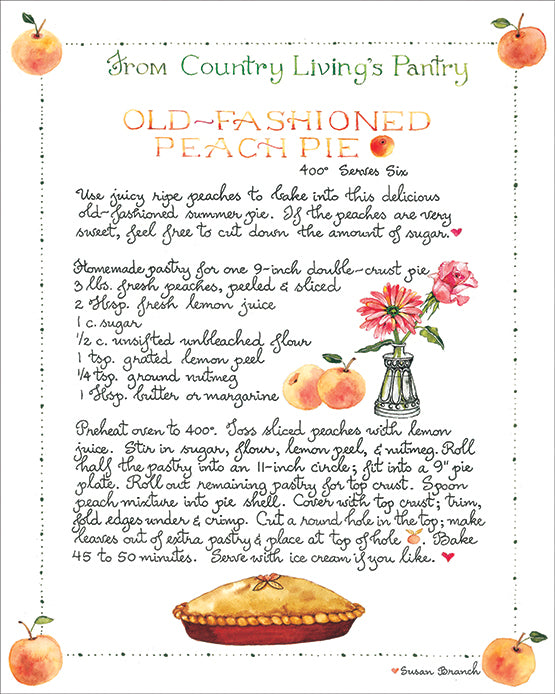 From Country Living's Pantry
OLD~FASHIONED
PEACH PIE
400° Serves Six
Use juicy ripe peaches to bake into this delicious
old-fashioned summer pie. If the peaches are very
sweet, feel free to cut down the amount of sugar.
Homemade pastry for one 9-inch double-crust pie
3 lbs. fresh peaches, peeled & sliced
2 Tbsp. fresh lemon juice
1 c. sugar
1/2 c. unsifted unbleached flour
1 tsp. grated lemon peel
1/4 tsp. ground nutmeg
1 Tbsp. butter or margarine
Preheat oven to 400°. Toss sliced peaches with lemon
juice. Stir in sugar, flour, lemon peel, & nutmeg. Roll
half the pastry into an 11-inch circle; fit into a 9" pie
plate. Roll out remaining pastry for top crust. Spoon
peach mixture into pie shell. Cover with top crust; trim,
fold edges under & crimp. Cut a round hole in the top; make
leaves out of extra pastry & place at top of hole. Bake
45 to 50 minutes. Serve with ice cream if you like.
Susan Branch